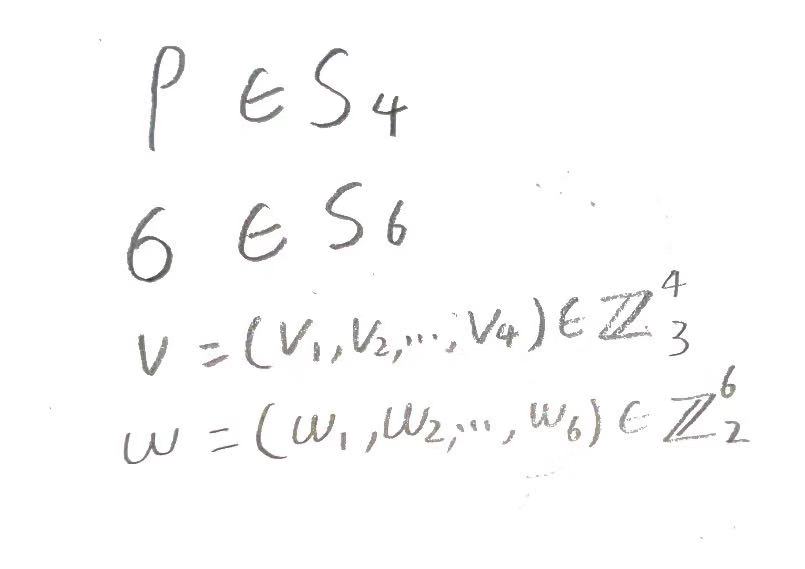 ρ ∈ S₄
6 ∈ S₆
v = (v₁, v₂, ..., v₄) ∈ ℤ₃⁴
w = (w₁, w₂, ..., w₆) ∈ ℤ₂⁶